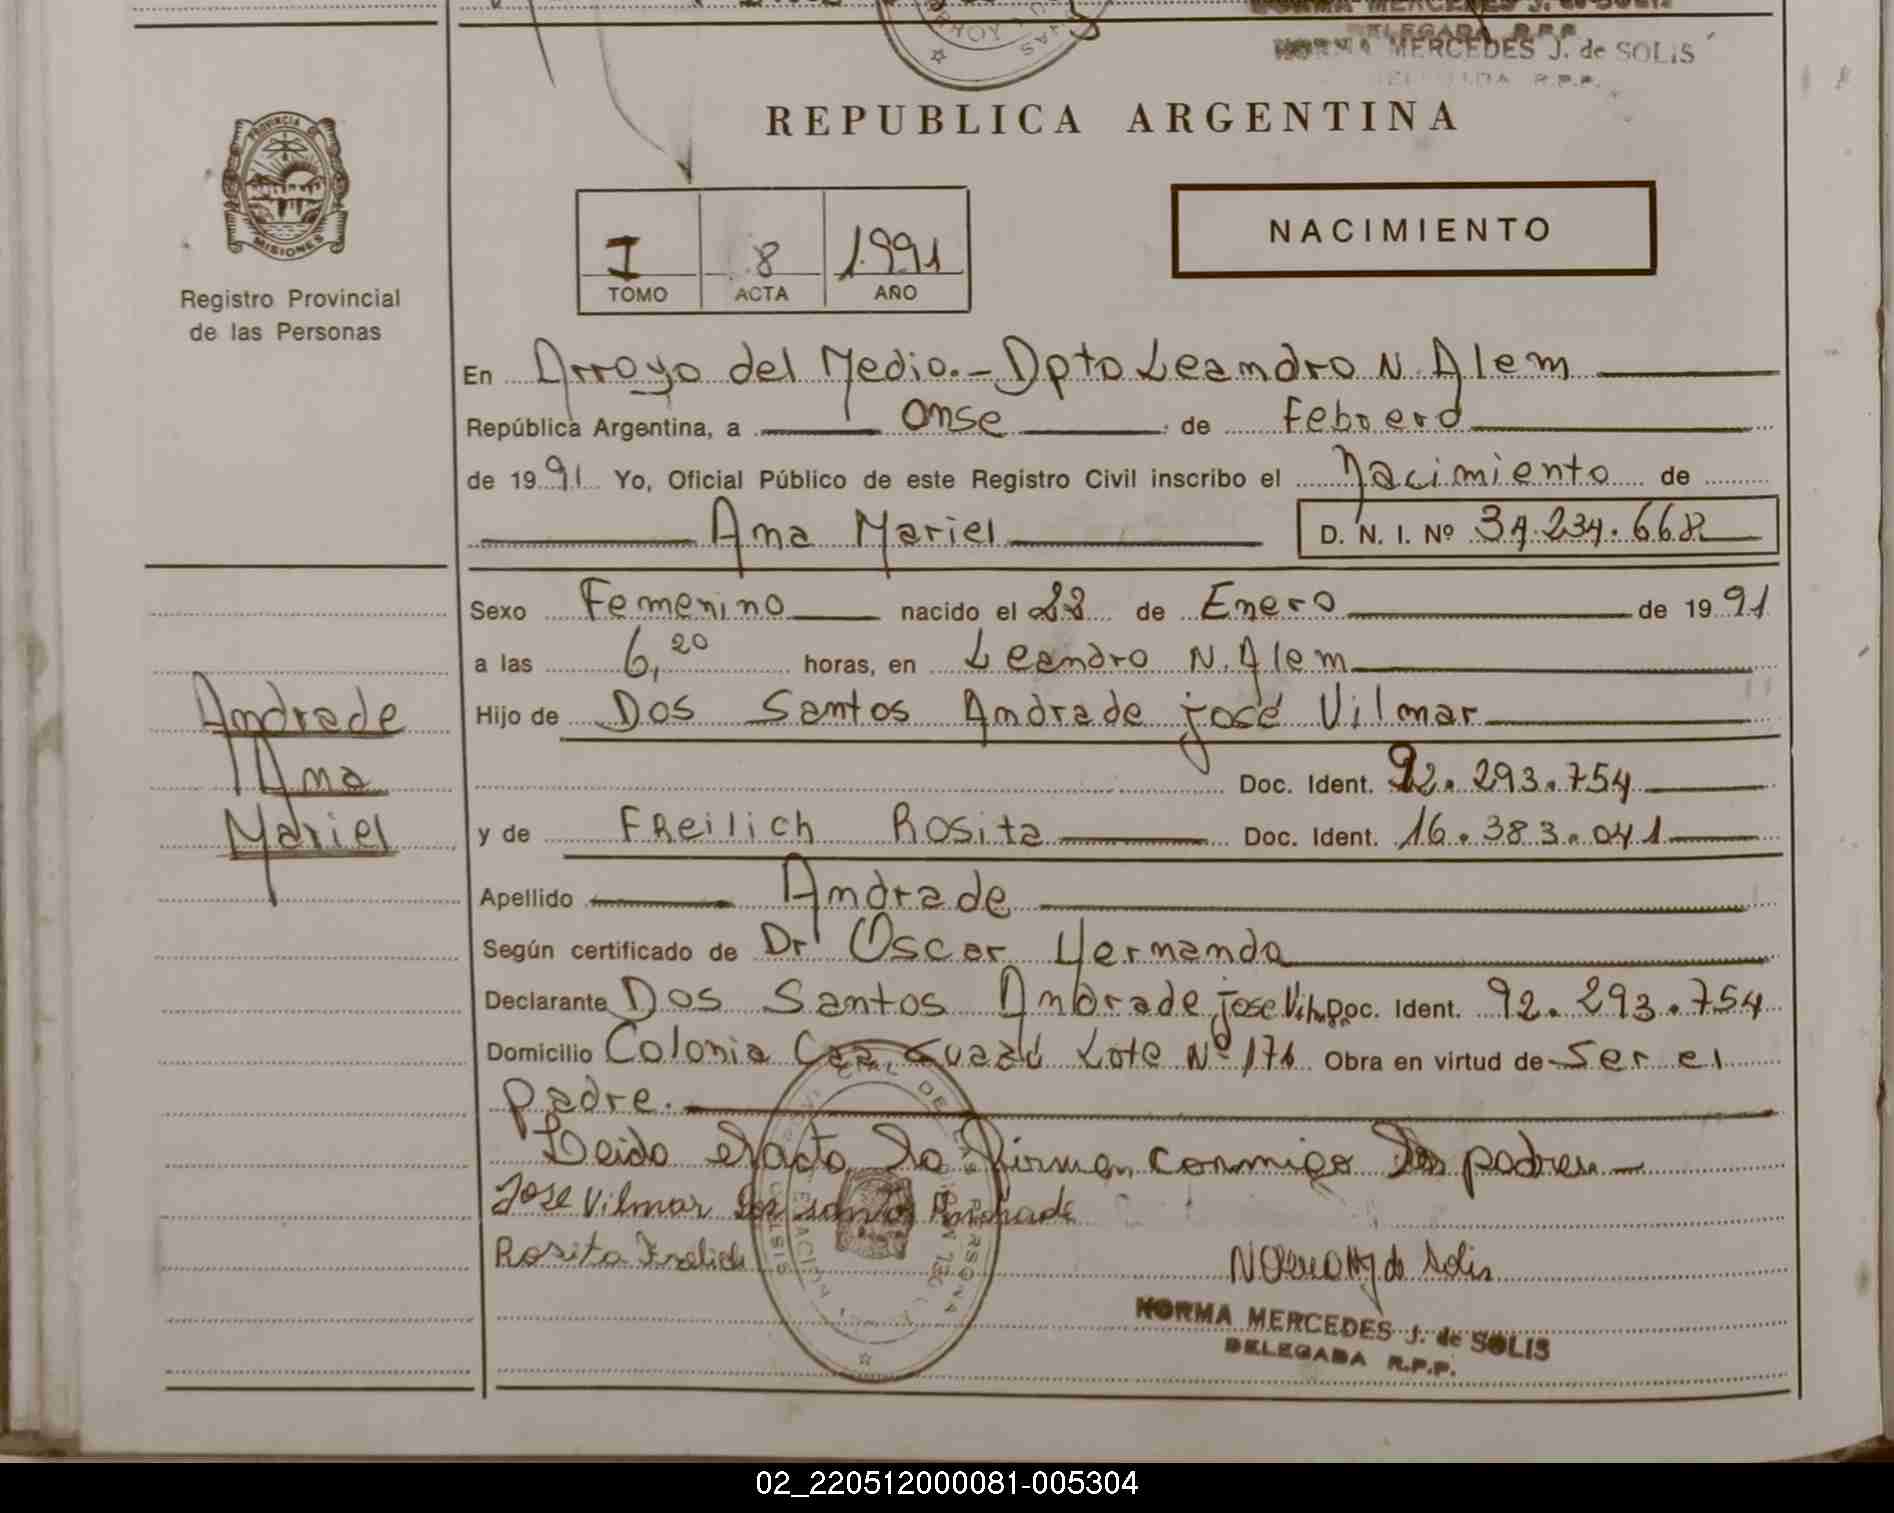 NORMA MERCEDES J. de SOLIS
DELEGADA R.P.P.
NORMA MERCEDES J. de SOLIS
DELEGADA R.P.P.
REPUBLICA ARGENTINA
PROVINCIA DE
MISIONES
Registro Provincial
de las Personas
I 8 1991
TOMO ACTA AÑO
NACIMIENTO
En Arroyo del Medio.- Dpto Leandro N. Alem
República Argentina, a onse de Febrero
de 1991 Yo, Oficial Público de este Registro Civil inscribo el Nacimiento de
Ana Mariel D. N. I. Nº 34.234.668
Sexo Femenino nacido el 22 de Enero de 1991
a las 6,20 horas, en Leandro N. Alem
Hijo de Dos Santos Andrade josé Vilmar
Doc. Ident. 92.293.754
y de FReilich Rosita Doc. Ident. 16.383.041
Apellido Andrade
Según certificado de Dr Oscar Hernando
Declarante Dos Santos Andrade jose Vilmar Doc. Ident. 92.293.754
Domicilio Colonia Caa Guazú Lote Nº 171 Obra en virtud de Ser el
padre.
Leida el acta la firman conmigo los padres
Jose Vilmar Dos santos Andrade
Rosita Freilich
NORMA MERCEDES J. de SOLIS
DELEGADA R.P.P.
Andrade
Ana
Mariel
02_220512000081-005304